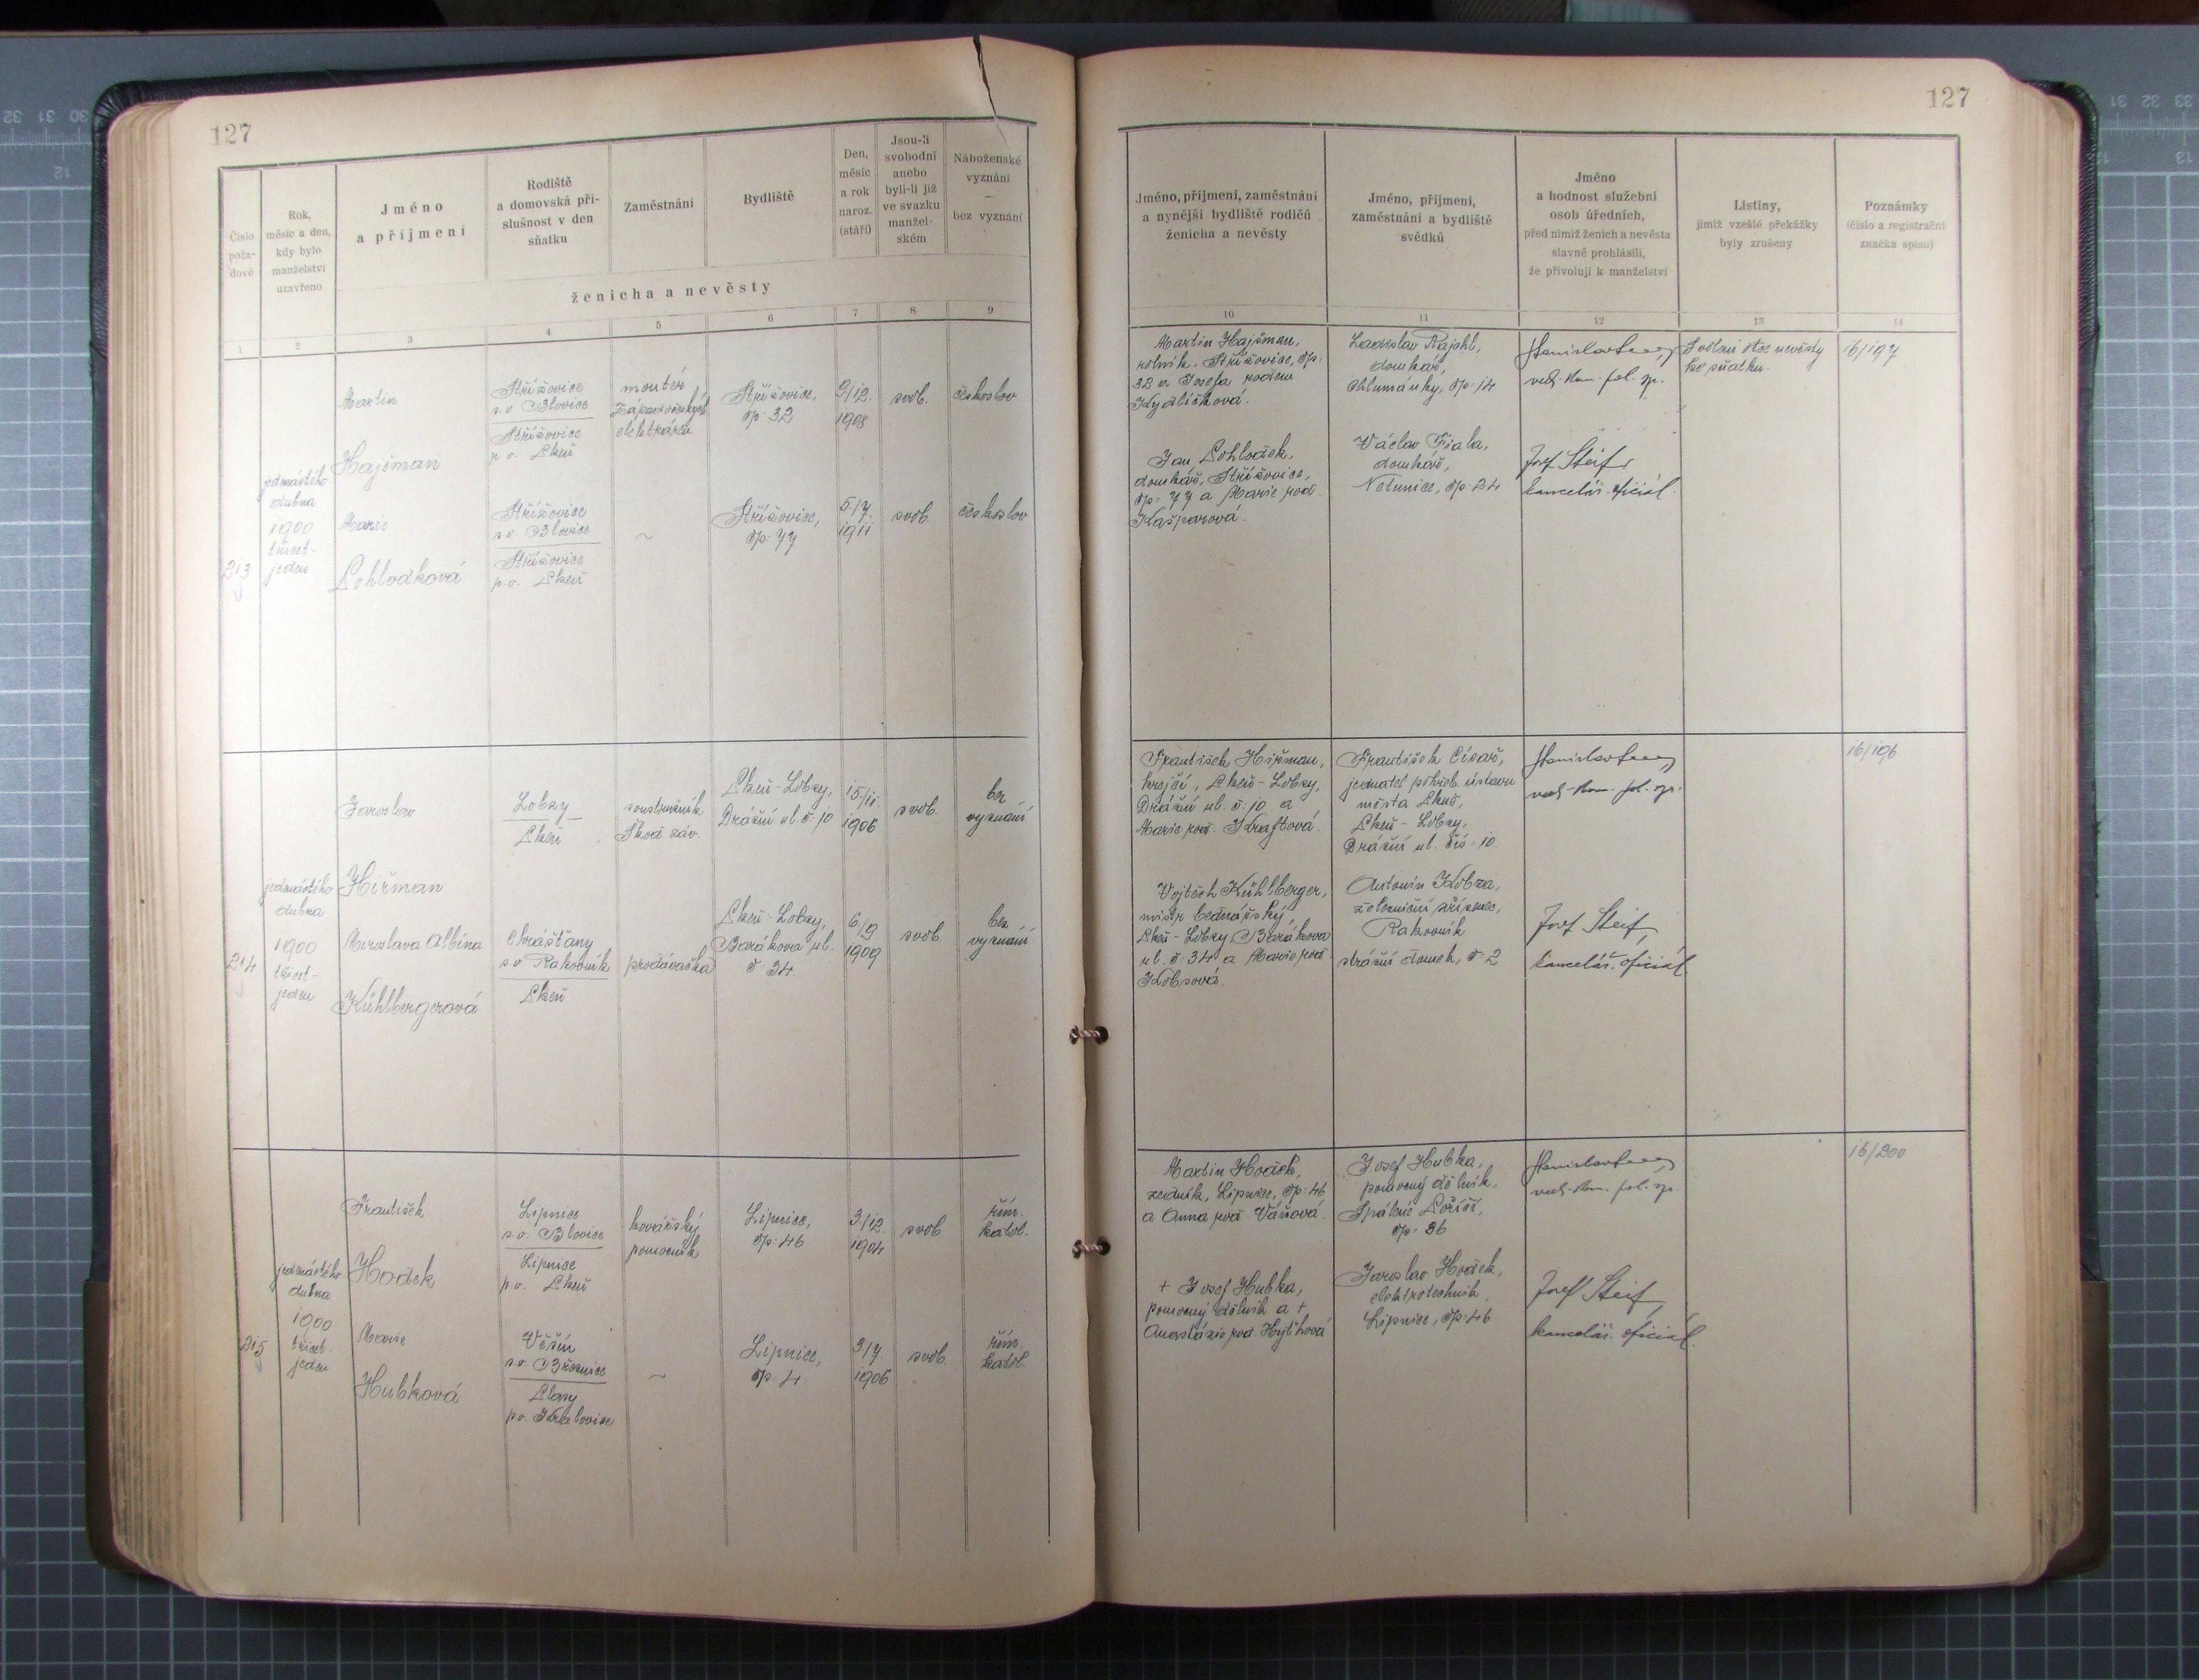 127
127
Číslo
pořa-
dové
Rok,
měsíc a den,
kdy bylo
manželství
uzavřeno
Jméno
a příjmení
Rodiště
a domovská pří-
slušnost v den
sňatku
Zaměstnání
Bydliště
Den,
měsíc
a rok
naroz.
(stáří)
Jsou-li
svobodni
anebo
byli-li již
ve svazku
manžel-
ském
Náboženské
vyznání
–
bez vyznání
ženicha a nevěsty
1 2 3 4 5 6 7 8 9
Jméno, příjmení, zaměstnání
a nynější bydliště rodičů
ženicha a nevěsty
Jméno, příjmení,
zaměstnání a bydliště
svědků
Jméno
a hodnost služební
osob úředních,
před nimiž ženich a nevěsta
slavně prohlásili,
že přivolují k manželství
Listiny,
jimiž vzešlé překážky
byly zrušeny
Poznámky
(číslo a registrační
značka spisu)
10 11 12 13 14
213
jedenáctého
dubna
1900
třicet-
jeden
Martin
Hajšman
Střížovice
s.o. Blovice
Střížovice
p.o. Plzeň
montér
Západočeských
elektráren
Střížovice,
čp. 32
9/12.
1908
svob.
českoslov
Marie
Pohlodková
Střížovice
s.o. Blovice
Střížovice
p.o. Plzeň
~
Střížovice,
čp. 77
5./7.
1911
svob.
českoslov
Martin Hajšman,
rolník, Střížovice, čp.
32 a Josefa rodem
Kydlíčková.
Jan Pohlodek,
domkář, Střížovice,
čp. 77 a Marie roz.
Kašparová.
Ladislav Rajchl,
domkář,
Chlumánky, čp. 14
Václav Fiala,
domkář,
Netunice, čp. 24
Stanislav
rad.
Josef Steif,
kancelář. oficiál.
Svolení otce nevěsty
ke sňatku.
16/197
214
jedenáctého
dubna
1900
třicet-
jeden
Jaroslav
Hiřman
Lobzy
Plzeň
soustružník
Škod. záv.
Plzeň-Lobzy,
Drážní ul. č. 10
15/11.
1906
svob.
bez
vyznání
Miroslava Albína
Kühlbergerová
Chrášťany
s.o. Rakovník
Plzeň
prodavačka
Plzeň-Lobzy,
Barákova ul.
č. 34
6/9
1909
svob.
bez
vyznání
František Hiřman,
krejčí, Plzeň-Lobzy,
Drážní ul. č. 10 a
Marie roz. Kraftová.
Vojtěch Kühlberger,
mistr bednářský,
Plzeň-Lobzy, Barákova
ul. č. 34 a Marie roz.
Kobsová.
František Císař,
jednatel pohřeb. ústavu
města Plzně,
Plzeň-Lobzy,
Drážní ul. čís. 10.
Antonín Kobza,
železniční zřízenec,
Rakovník
strážní domek, č. 2
Stanislav
rad.
Josef Steif,
kancelář. oficiál.
16/196
215
jedenáctého
dubna
1900
třicet-
jeden
František
Hodek
Lipnice
s.o. Blovice
Lipnice
p.o. Plzeň
kovářský
pomocník
Lipnice,
čp. 46
3/12.
1904
svob.
řím.
katol.
Marie
Hubková
Věšín
s.o. Březnice
Plasy
p.o. Kralovice
~
Lipnice,
čp. 4
3/7
1906
svob.
řím.
katol.
Martin Hodek,
zedník, Lipnice, čp. 46
a Anna roz. Váňová.
+ Josef Hubka,
pomocný dělník a +
Anastázie roz. Hyťhová
Josef Hubka,
pomocný dělník,
Spálené Poříčí,
čp. 86
Jaroslav Hodek,
elektrotechnik,
Lipnice, čp. 46
Stanislav
rad.
Josef Steif,
kancelář. oficiál.
16/200